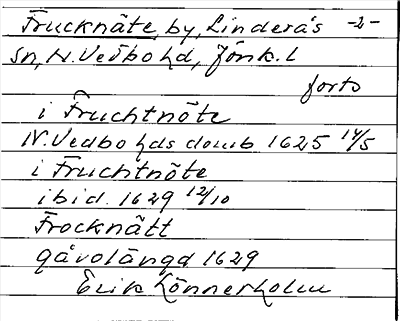 Frucknäte, by, Linderås -2-
sn, N. Vedbo hd, Jönk. l
forts
i Fruchtnöte
N. Vedbo hds domb 1625 14/5
i Fruchtnöte
ibid. 1629 12/10
Frocknätt
gåvolängd 1629
Erik Lönnerholm